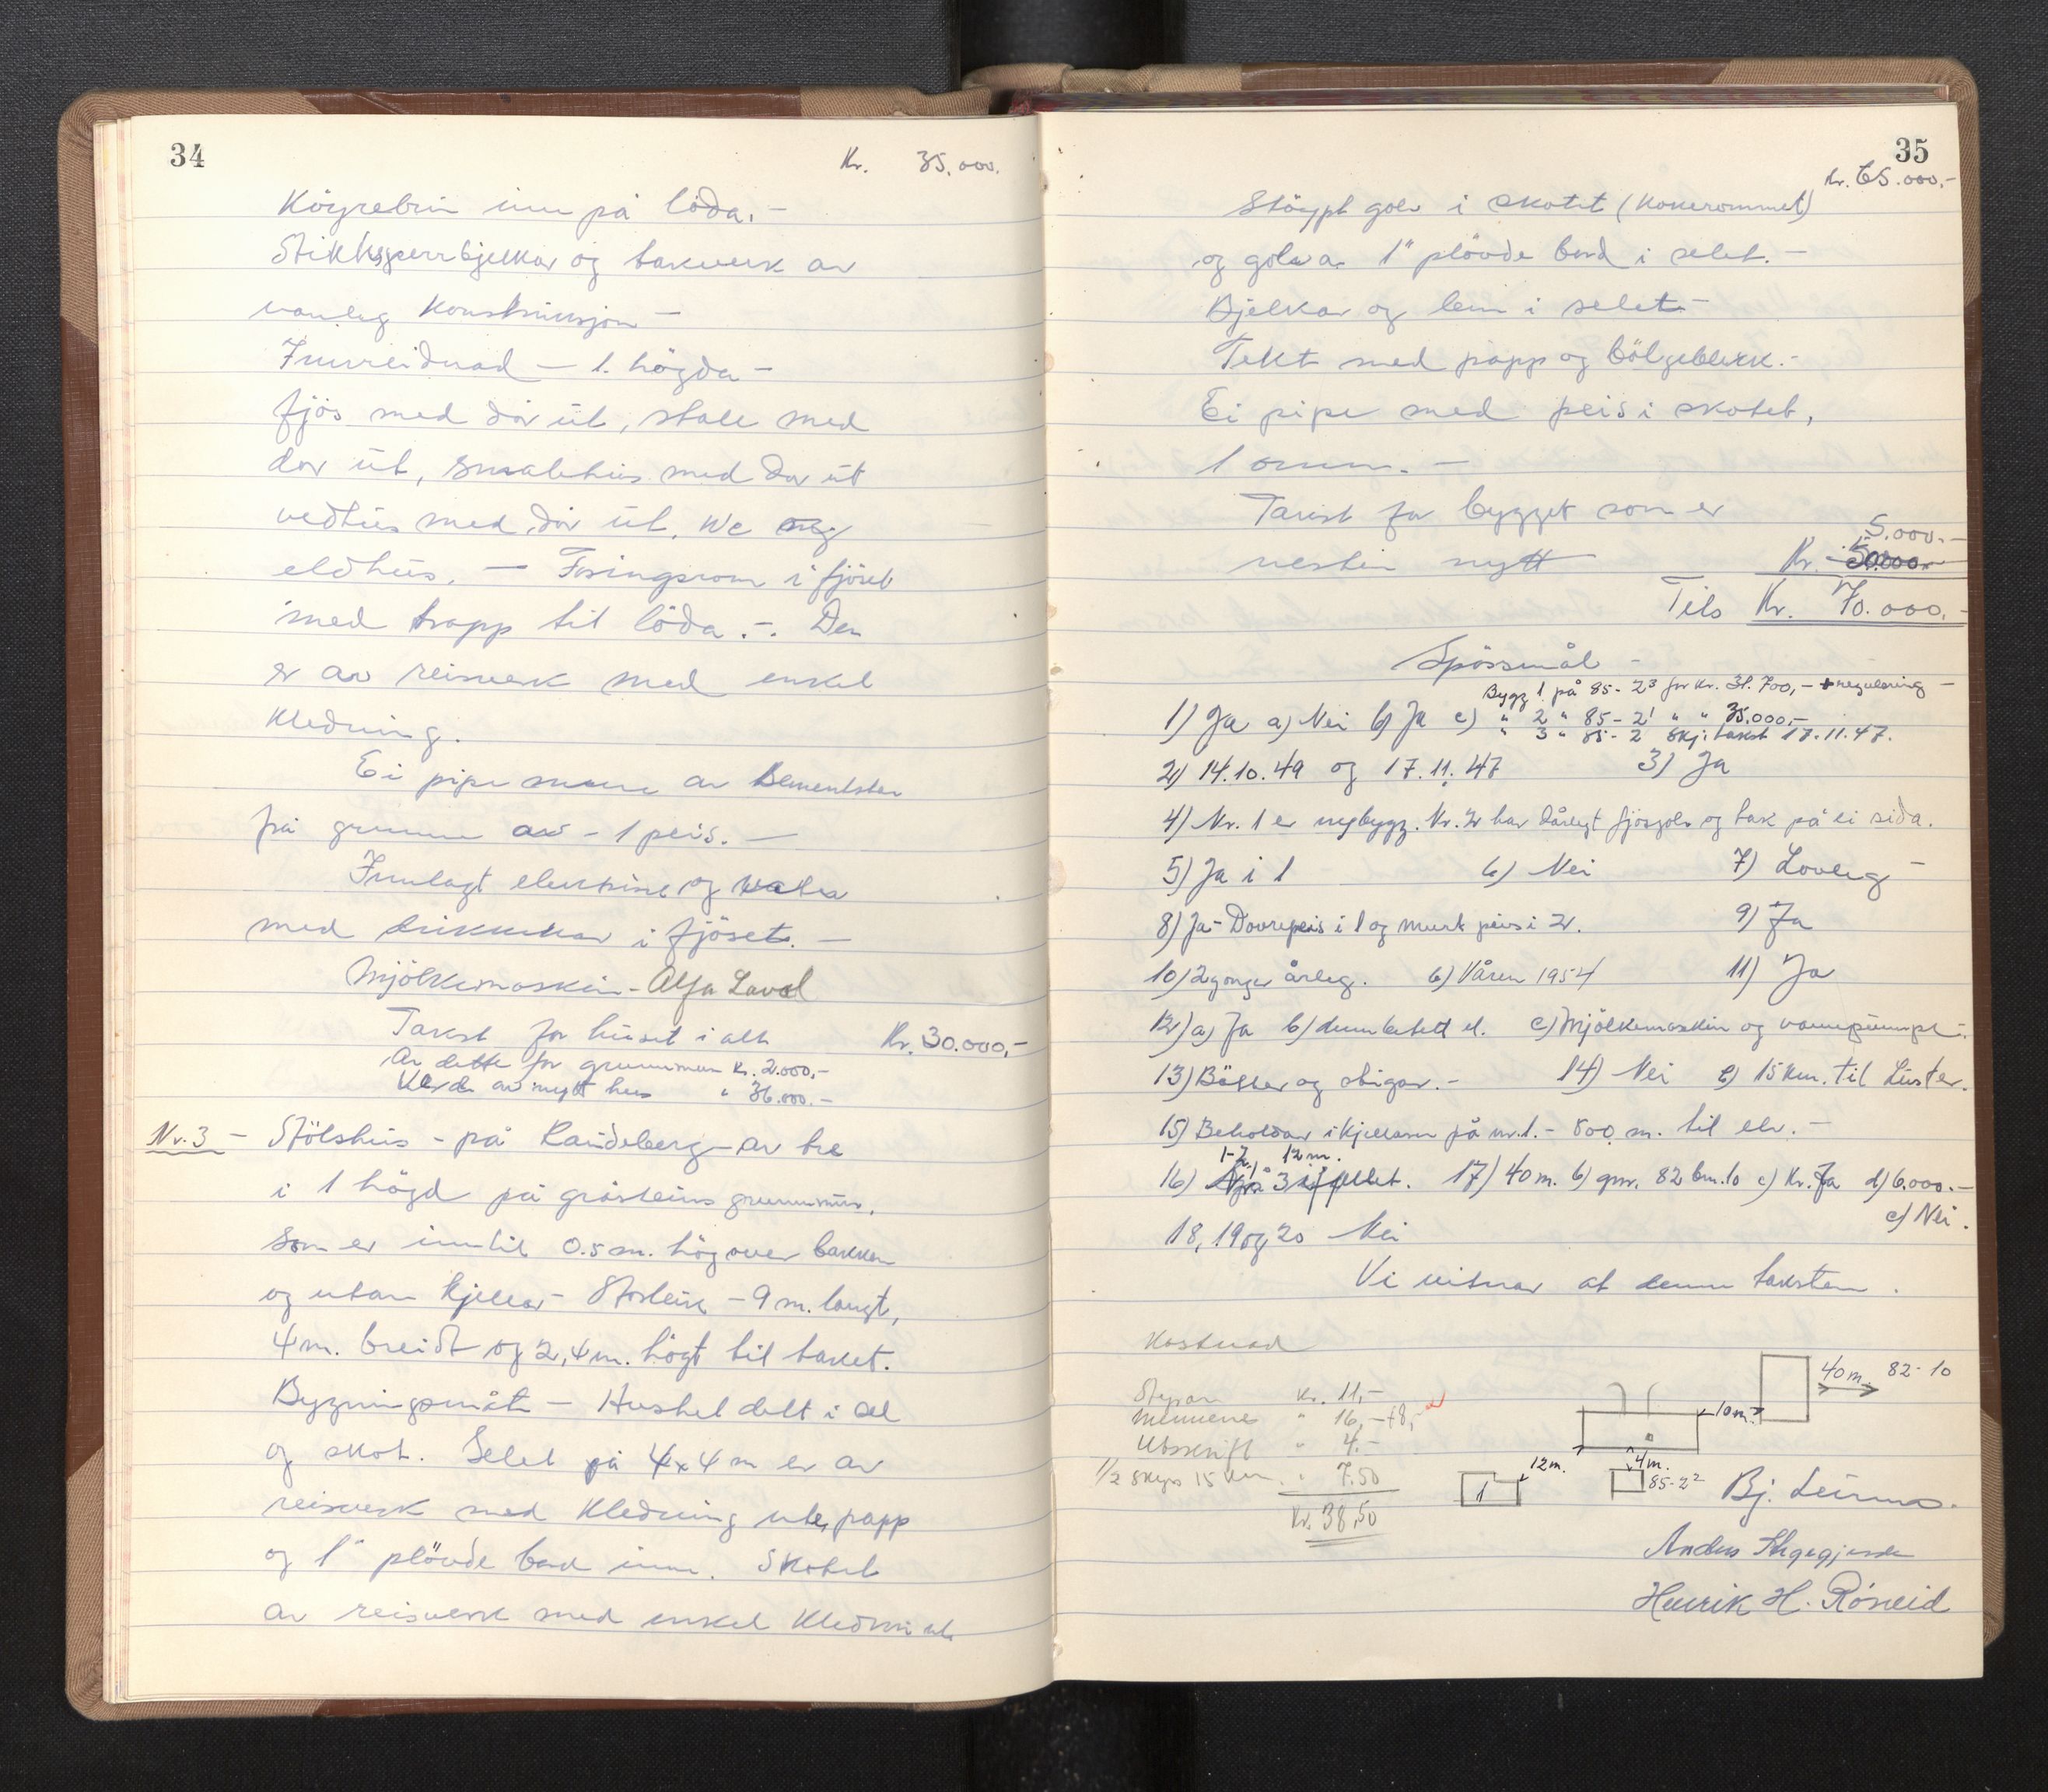 34
Kr. 35.000.
Köyrebru inn på löda. -
Stikksperrbjelkar og takverk av
vanleg Konstruksjon -
Innreidnad - 1. högda -
fjös med dör ut, stall med
dör ut, smalehus med dör ut
vedhus med dör ut, Wc og
eldhus. - Foringsrom i fjöset
med trapp til löda. -. Den
er av reisverk med enkel
Kledning.
Ei pipe av Sementstein
frå grunn av - 1 peis. -
Innlagt elektrisk og vatn
med drikkekar i fjöset. -
Mjölkemaskin - Alfa Laval
Takst for huset i alt Kr. 30.000,-
Av dette for grunnmur Kr. 2.000,-
Verde av nytt hus " 36.000.-
Nr. 3 - Stölshus - på Raudeberg - av tre
i 1 högd på gråsteins grunnmur,
som er inntil 0.5 m. hög over bakken
og utan Kjellar - Storleik - 9 m. langt,
4 m. breidt og 2,4 m. högt til taket.
Bygningsmåte - Huset delt i sel
og skot. Selet på 4x4 m er av
reisverk med Kledning ute, papp
og 1" plöyde bord inne. Skotet
av reisverk med enkel Kledni ute
35
Kr. 65.000,-
Stöypt golv i skotet (Kokerommet)
og golv av 1" plöyde bord i selet. -
Bjelkar og lem i selet -
Tekt med papp og bölgeblekk. -
Ei pipe med peis i skotet,
1 omn. -
Takst for bygget som er 5.000.-
nesten nytt Kr. 50000.
Tils Kr. 70.000.-
Spössmål -
Bygg 1 på 85-2³ for Kr. 31.700,- + regulering -
1) Ja a) Nei b) Ja c) " 2 " 85-2¹ " " 35.000,-
" 3 " 85-2 Skj. takst 17.11.47.
2) 14.10.49 og 17.11.47 3) Ja
4) Nr. 1 er nybygg. Nr. 2 har dårlegt fjösgolv og tak på ei sida.
5) Ja i 1 6) Nei 7) Lovleg -
8) Ja - Dovrepeis i 1 og murt peis i 2. 9) Ja
10) 2 gonger årleg. b) Våren 1954 11) Ja
12) a) Ja b) el. c) Mjölkemaskin og vasspumpe -
13) Bötter og stigar. - 14) Nei b) 15 km. til Luster.
15) Behaldar i Kjellaren på nr. 1. - 800 m. til elv. -
1-2, 12 m.
16) 3 i fjellet. 17) 40 m. b) gnr. 82 bn. 10 c) Kr. Ja d) 6.000.-
e) Nei.
18, 19 og 20 Nei
Vi vitnar at denne taksten.
Kostnad
40 m. 82-10
Kr. 11,-
10 m.
" 16,- +8,-
Utskrift " 4.-
12 m.
4 m.
1/2 skyss 15 km. " 7.50
1
85-2²
Kr. 38,50
Bj. Leirmo.
Henrik H. Röneid